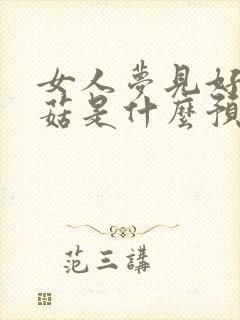 女人夢見好
菇是什麼預
范三講